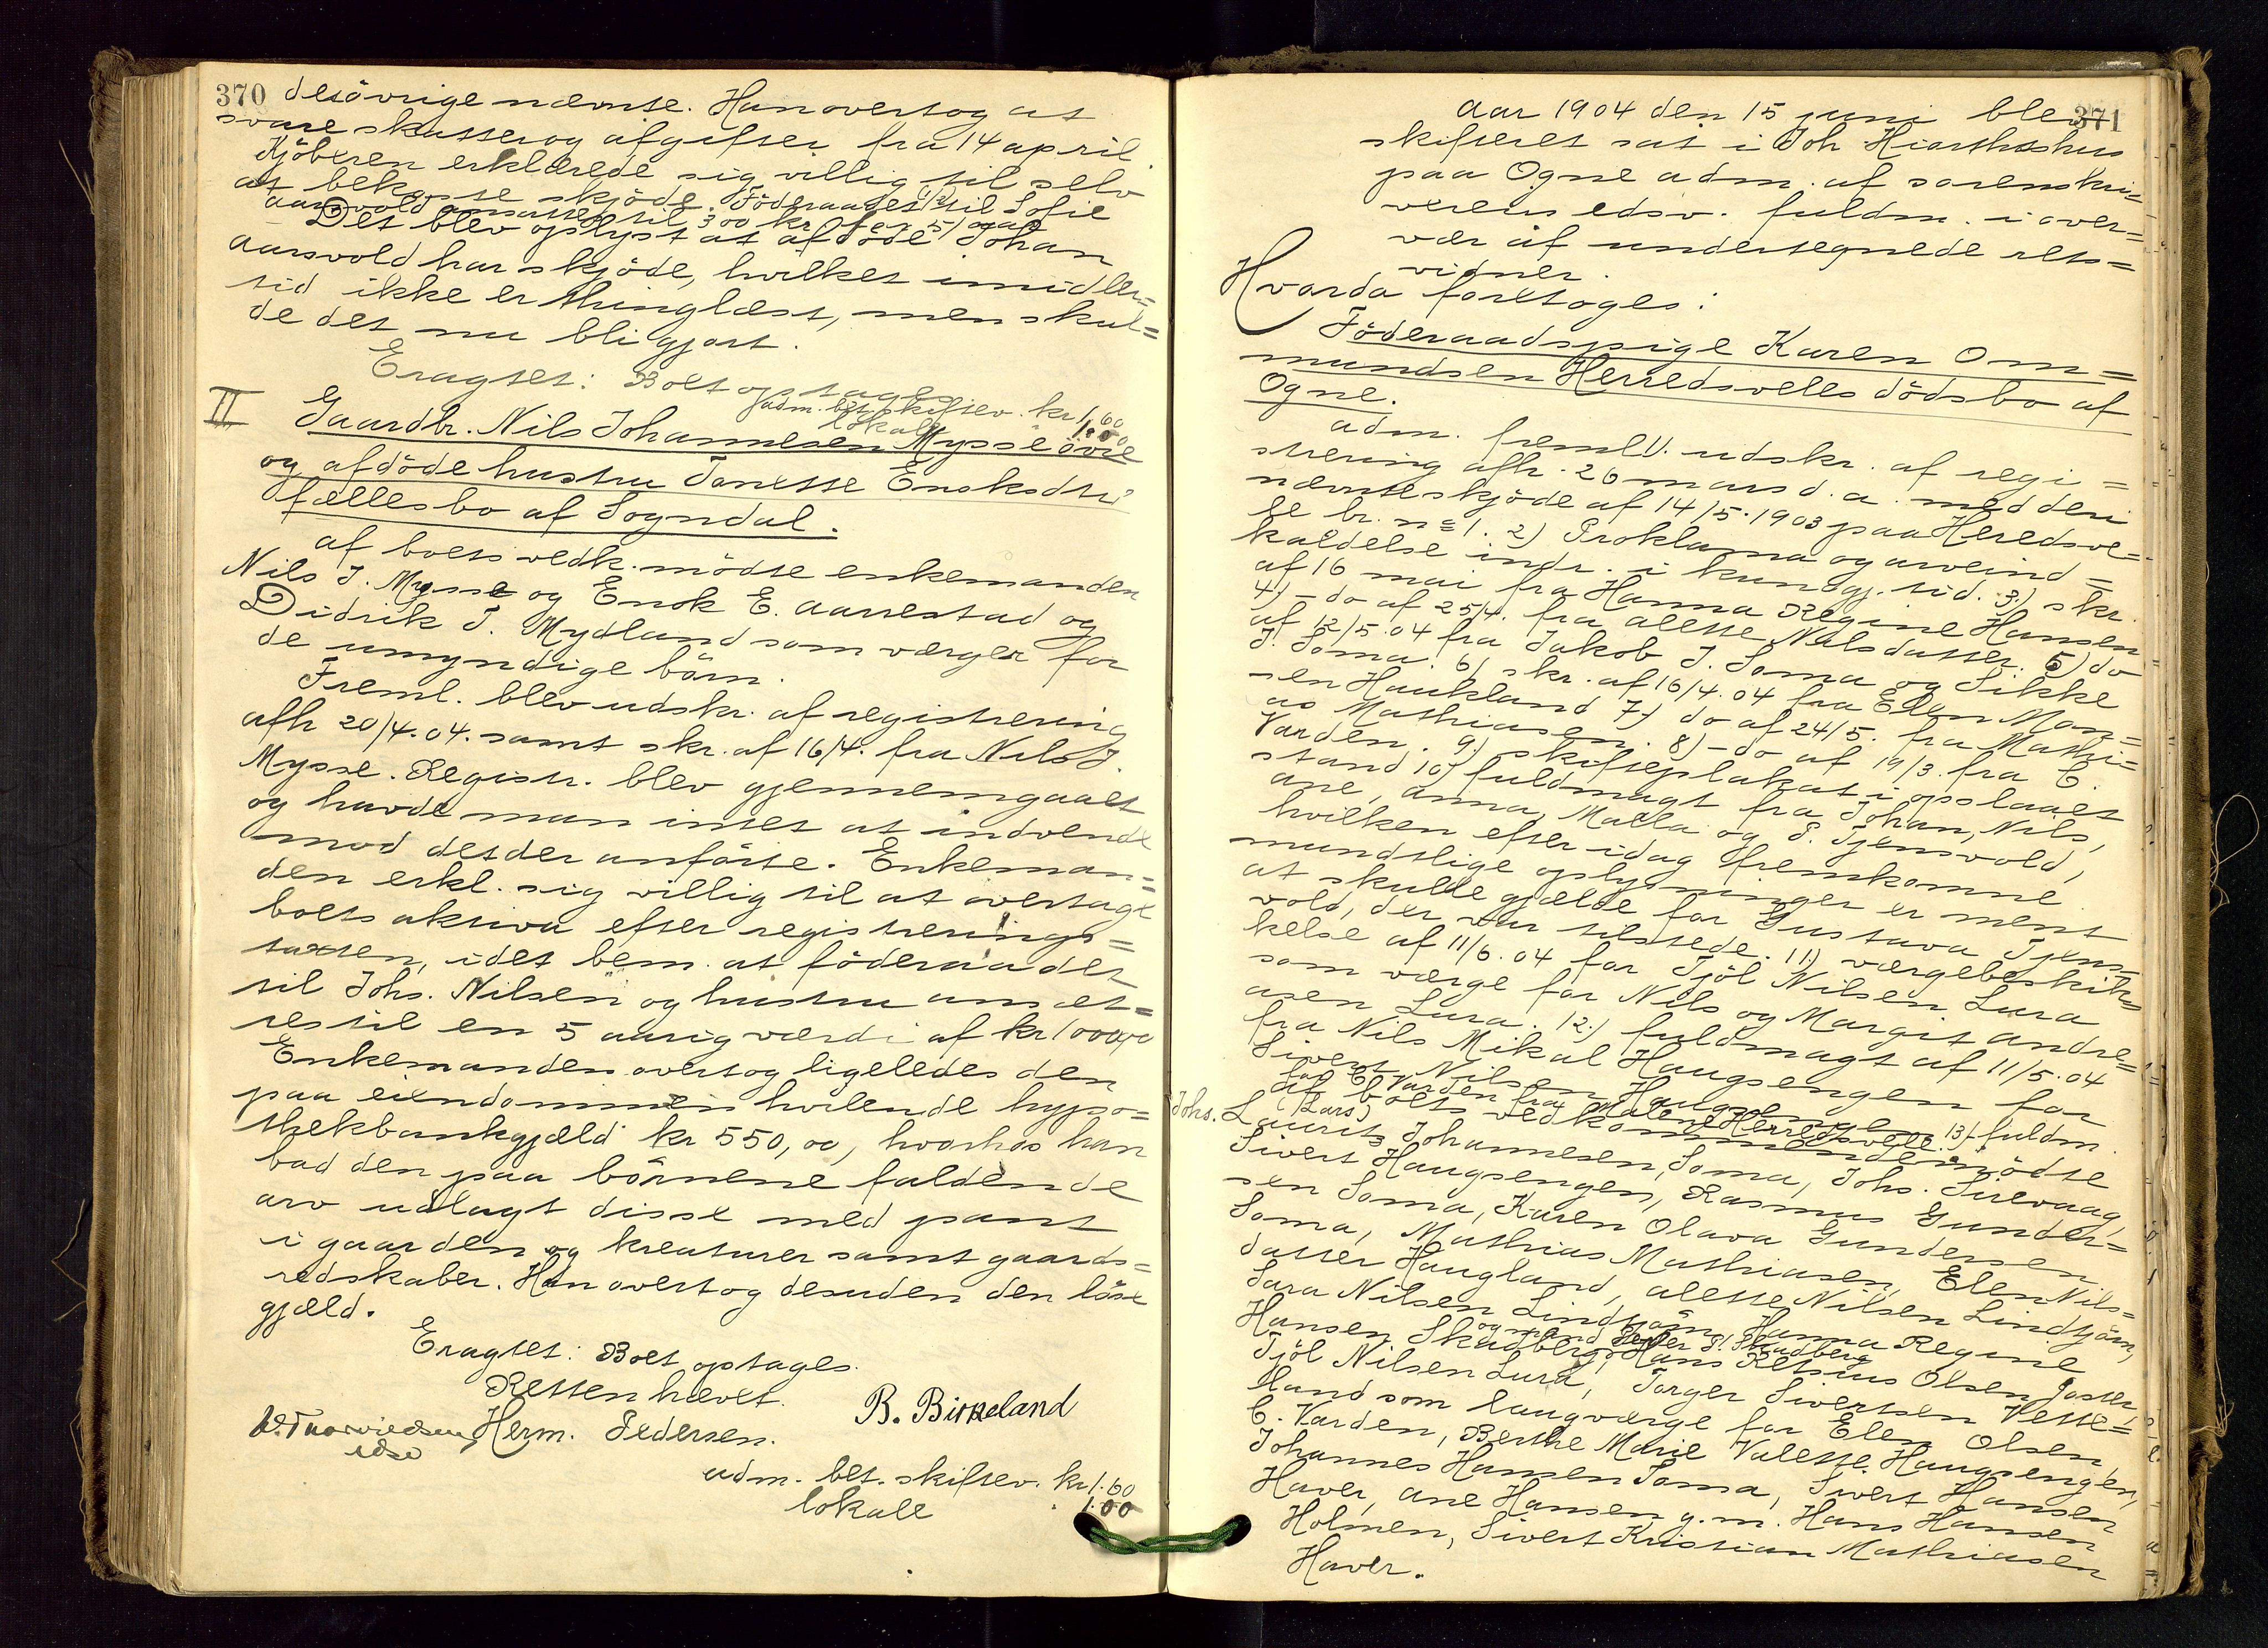 370
desövrige nævnte. Han overtog at
svare skatter og afgifter fra 14 april.
Kjöberen erklærede sig villig til selv
at bekoste skjöde. Föderaadet (1/2) til Sofie
Aarsvold ansattes til 300 kr for 5/ aar
Det blev oplyst at afdöde Johan
Aarsvold har skjöde, hvilket imidler=
tid ikke er thinglæst, men skul=
de det nu bli gjort.
Eragtet: Boet optages
adm. bet. skiftev. kr 1.60
lokale 1.00
II Gaardbr. Nils Johannesen Mysse övre
og afdöde hustru Tonette Enoksdtr
fællesbo af Sogndal.
af boets vedk. mödte enkemanden
Nils J. Mysse og Enok E. Aarrestad og
Didrik T. Mydland som værger for
de umyndige börn.
Freml. blev udskr. af registrering
afh 20/4.04. samt skr. af 16/4. fra Nils J.
Mysse. Registr. blev gjennemgaaet
og havde man intet at indvende
mod det der anförte. Enkeman=
den erkl. sig villig til at overtage
boets aktiva efter registrerings=
taxten, idet bem. at föderaadet
til Johs. Nilsen og hustru ansæt=
tes til en 5 aarig værdi af kr 1000,00
Enkemanden overtog ligeledes den
paa eiendommen hvilende hypo=
thekbankgjæld kr 550,00, hvorhos han
bad den paa börnene faldende
arv udlagt disse med pant
i gaarden og kreaturer samt gaards=
redskaber. Han overtog desuden den löse
gjæld.
Eragtet: Boet optages.
Retten hævet.
B. Birkeland
Herm. Pedersen.
adm. bet. skiftev. kr 1.60
lokale 1.00
371
Aar 1904 den 15 juni blev
skifteret sat i Joh Hiorthshus
paa Ogne adm. af sorenskri=
verens edsv. fuldm. i over=
vær af undertegnede rets=
vidner.
Hvorda foretoges:
Föderaadspige Karen Om=
mundsen Herredsvelles dödsbo af
Ogne.
adm. freml 1). udskr. af regi=
strering afh. 26 mars d. a. med deri
nævnte skjöde af 14/5.1903 paa Heredsve=
le br. no 1. 2) Proklama og arveind=
kaldelse indr. i kundgj. tid. 3) skr.
af 16 mai fra Hanna Regine Hansen
4) - do af 25/4. fra Alette Nilsdatter. 5) do
af 12/5.04 fra Jakob J. Soma og Sikke
J. Soma. 6) skr. af 16/4.04 fra Elen Mon=
sen Haukland 7) do af 24/5. fra Mathi=
as Mathiasen. 8) - do af 19/3. fra E.
Varden. 9) skifteplakat i opslaaet
stand 10) fuldmagt fra Johan, Nils,
ane, anna, Malla og P. Tjensvold,
hvilken efter idag fremkomne
mundtlige oplysninger er ment
at skulle gjælde for Gustava Tjens=
vold, der var tilstede. 11) værgebeskik=
kelse af 11/6.04 for Tjöl Nilsen Lura
som værge for Nils og Margit andre=
asen Lura. 12.) fuldmagt af 11/5.04
fra Nils Mikal Haugsengen for
Sivert Nilsen Haugsengen 13) fuldm.
for E Varden fra Malene Herredsvelle.
af boets vedkommende mödte
Johs. (Lars)
Laurits Johannesen Soma, Johs. Sirevaag,
Sivert Haugsengen, Rasmus Gunder=
sen Soma, Karen Olava Gundersen
Soma, Mathias Mathiasen, Elen Nils=
datter Haugland, Alette Nilsen Lindtjörn,
Sara Nilsen Lindtjörn, Hanna Regine
og mand Peder P. Skadberg
Hansen Skadberg, Hans Retsius Olsen Joster,
Tjöl Nilsen Lura, Torger Sivertsen Vette=
land som laugværge for Elen Olsen,
E. Varden, Berthe Marie Valette Haugsengen,
Johannes Hansen Soma, Sivert Hansen
Haver, ane Hansen g.m. Hans Hansen
Holmen, Sivert Kristian Mathiasen
Haver.